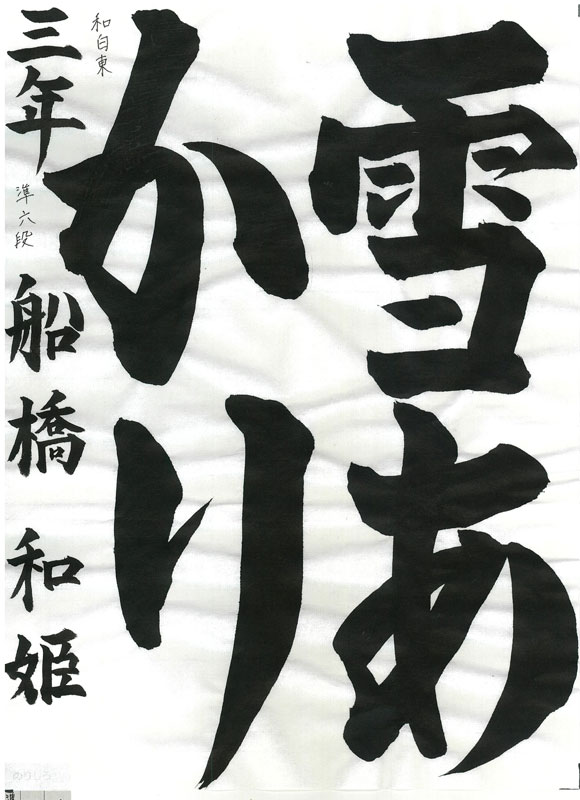 雪あ
かり
和白東
三年
準六段
船橋 和姫